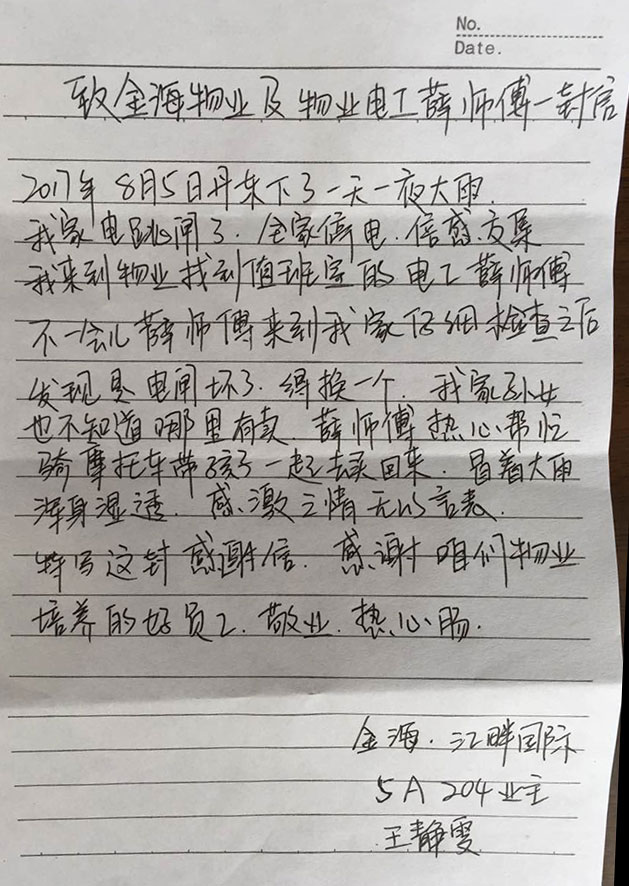 No.
Date.
致金海物业及物业电工薛师傅一封信
2017年8月5日丹东下了一天一夜大雨.
我家电跳闸了.全家停电.倍感交集
我来到物业找到值班室的电工薛师傅
不一会儿薛师傅来到我家仔细检查之后
发现是电闸坏了.得换一个.我家孙女
也不知道哪里有卖.薛师傅热心帮忙
骑摩托车带孩子一起去买回来.冒着大雨
浑身湿透.感激之情无以言表.
特写这封感谢信.感谢咱们物业
培养的好员工.敬业.热心肠.
金海.江畔国际
5A 204业主
王静雯